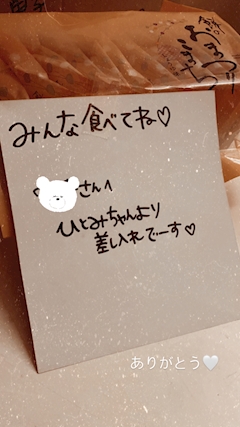 みんな食べてね♡
さんへ
ひとみちゃんより
差し入れでーす♡
ありがとう🤍